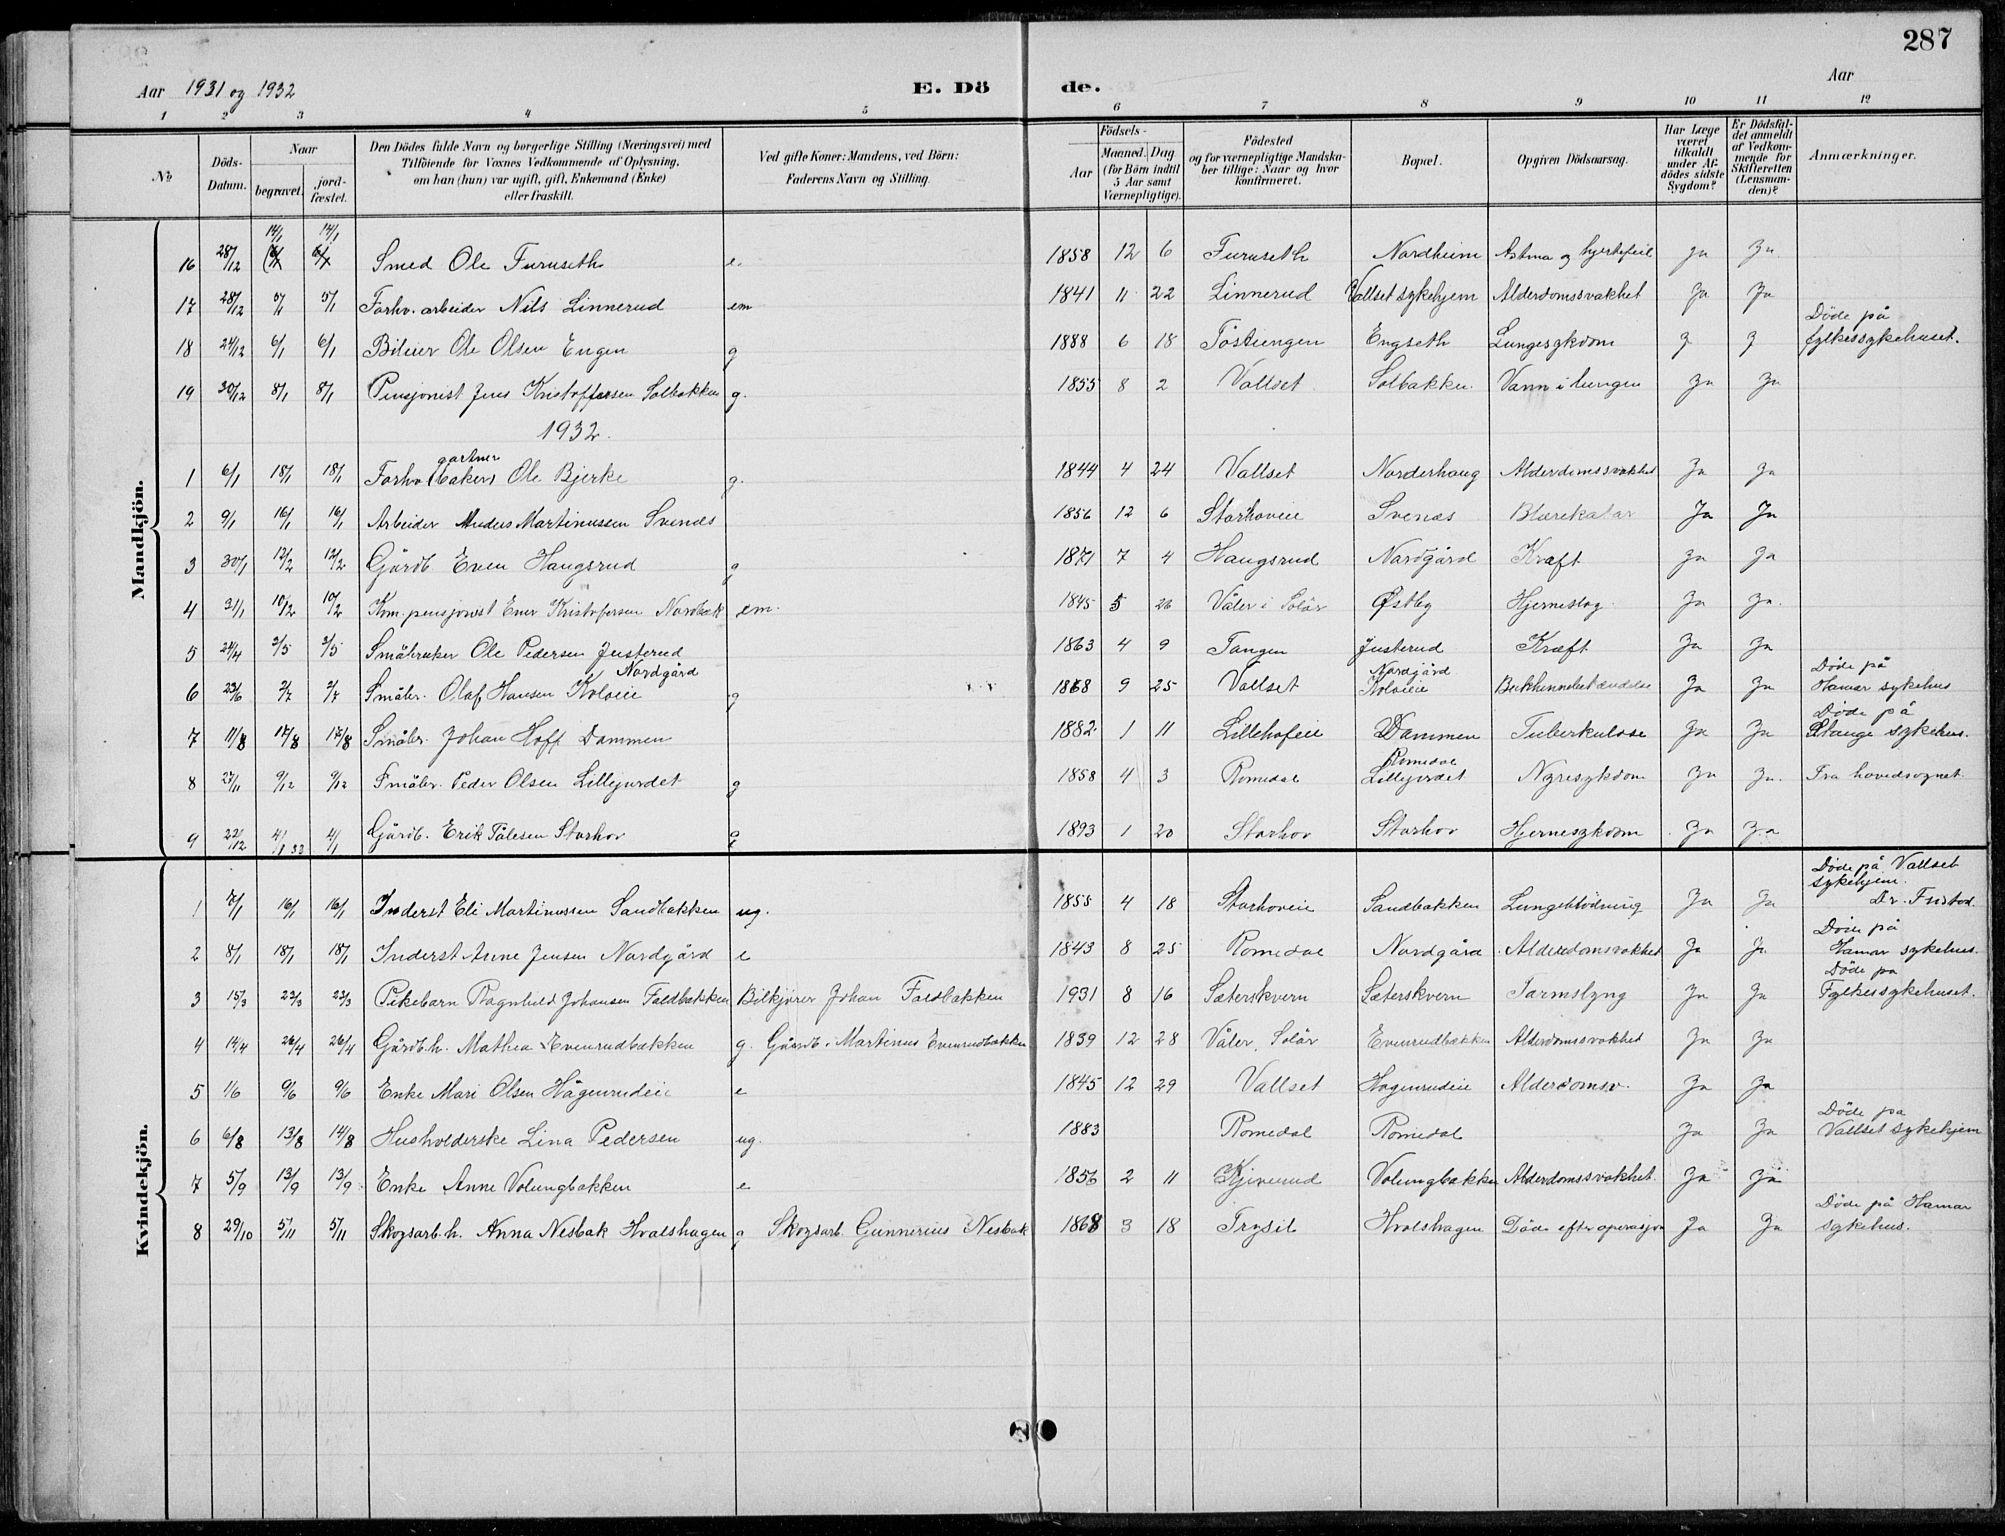 287
Aar 1931 og 1932 E. Dö de. Aar
1 2 3 4 5 6 7 8 9 10 11 12
№
Döds-Datum.
Naar
begravet.
jord-fæstet.
Den Dödes fulde Navn og borgerlige Stilling (Næringsvei) med
Tilföiende for Voxnes Vedkommende af Oplysning,
om han (hun) var ugift, gift, Enkemand (Enke)
eller fraskilt.
Ved gifte Koner: Mandens, ved Börn:
Faderens Navn og Stilling.
Födsels-
Aar
Maaned. Dag
(for Börn indtil
5 Aar samt
Værnepligtige).
Födested
og for værnepligtige Mandska-
ber tillige: Naar og hvor
konfirmeret.
Bopæl.
Opgiven Dödsaarsag.
Har Læge
været
tilkaldt
under Af-
dödes sidste
Sygdom?
Er Dödsfal-
det anmeldt
af Vedkom-
mende for
Skifteretten
(Lensman-
den)?
Anmærkninger.
Mandkjön.
14/1 14/1
16 28/12 6/1 6/1 Smed Ole Furuseth e. 1858 12 6 Furuseth Nordheim Astma og hjertefeil Ja Ja
17 28/12 5/1 5/1 Forhv. arbeider Nils Linnerud em 1841 11 22 Linnerud Vallset sykehjem Alderdomssvakhet Ja Ja
18 24/12 6/1 6/1 Bileier Ole Olsen Engen g 1888 6 18 Töstiengen Engseth Lungesykdom J J Döde på fylkessykehuset.
19 30/12 8/1 8/1 Pensjonist Jens Kristoffersen Solbakken g. 1855 8 2 Vallset Solbakken Vann i lungen Ja Ja
1932.
gartner
1 6/1 18/1 18/1 Forhv (baker) Ole Bjerke g. 1844 4 24 Vallset Norderhaug Alderdomssvakhet Ja Ja
2 9/1 16/1 16/1 Arbeider Anders Martinussen Svenæs 1856 12 6 Starhoveie Svenæs Blærekatar Ja Ja
3 30/1 12/2 12/2 Gårdb. Even Haugsrud g 1871 7 4 Haugsrud Nordgård Kræft Ja Ja
4 31/1 10/2 10/2 Km. pensjonist Ener Kristofersen Nordbæk em. 1845 5 26 Våler i Solör Østby Hjerneslag. Ja Ja.
5 24/4 3/5 3/5 Småbruker Ole Pedersen Justerud 1863 4 9 Tangen Justerud Kræft Ja Ja
Nordgård
6 23/6 2/7 2/7 Småbr. Olaf Hansen Koloeie g 1868 9 25 Vallset Nordgård Koloeie Bukhinnebetændelse Ja Ja Döde på Hamar sykehus
7 11/8 17/8 17/8 Småbr. Johan Hoff Dammen 1882 1 11 Lillehofeie Dammen Tuberkulose Ja Ja Döde på Stange sykehus.
8 27/11 9/12 9/12 Småbr. Peder Olsen Lillejordet g 1858 4 3 Romedal Romedal Lillejordet Nyresykdom Ja Ja. Fra hovedsognet.
9 22/12 4/1 33 4/1 Gårdb. Erik Pålesen Starhov g 1893 1 20 Starhov Starhov Hjernesykdom Ja Ja
Kvindekjön.
1 7/1 16/1 16/1 Inderst Eli Martinussen Sandbakken ug. 1855 4 18 Starhoveie Sandbakken Lungeblödning Ja Ja Döde på Vallset sykehjem. Dr.
2 8/1 18/1 18/1 Inderst Anne Jensen Nordgård e 1843 8 25 Romedal Nordgård Alderdomsvakhet Ja Ja Döde på Hamar sykehus.
3 15/3 23/3 23/3 Pikebarn Ragnhild Johansen Faldbakken Bilkjører Johan Faldbakken 1931 8 16 Sæterskvern Sæterskvern Tarmslyng Ja Ja Döde på Fylkessykehuset.
4 14/4 26/4 26/4 Gårdb.h. Mathea Evenrudbakken g. Gårdb. Martinus Evenrudbakken 1839 12 28 Våler, Solör Evenrudbakken Alderdomssvakhet Ja Ja
5 1/6 9/6 9/6 Enke Mari Olsen Hågenrudeie e 1845 12 29 Vallset Hagenrudeie Alderdomsv. Ja Ja
6 6/8 13/8 14/8 Husholderske Lina Pedersen ug. 1883 Romedal Romedal Ja Ja Döde på Vallset sykehjem
7 5/9 13/9 13/9 Enke Anne Volungbakken e 1856 2 11 Kjiverud Volungbakken Alderdomssvakhet. Ja Ja
8 29/10 5/11 5/11 Skogsarb.h. Anna Nesbak Hvalshagen g Skogsarb. Gunnerius Nesbak 1868 3 18 Trysil Hvalshagen Döde efter operasjon Ja Ja Döde på Hamar sykehus.